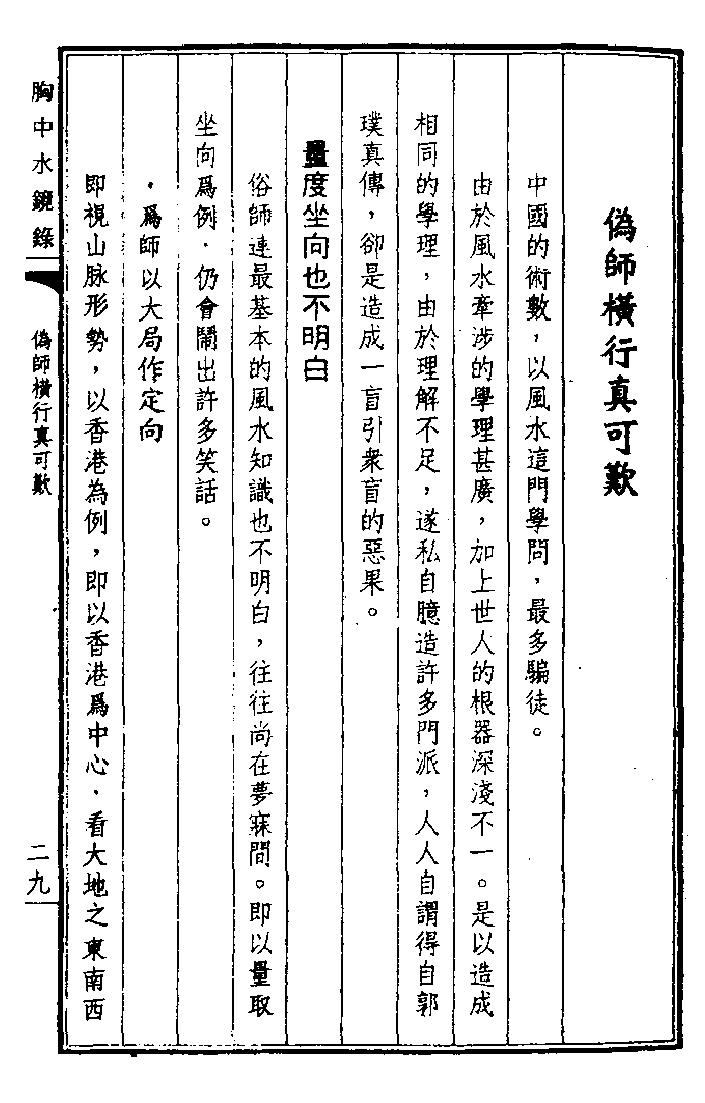 偽師橫行真可歎
中國的術數，以風水這門學問，最多騙徒。
由於風水牽涉的學理甚廣，加上世人的根器深淺不一。是以造成
相同的學理，由於理解不足，遂私自臆造許多門派，人人自謂得自郭
璞真傳，卻是造成一盲引衆盲的惡果。
量度坐向也不明白
俗師連最基本的風水知識也不明白，往往尚在夢寐間。即以量取
坐向爲例．仍會鬧出許多笑話。
．爲師以大局作定向
即視山脉形勢，以香港為例，即以香港爲中心．看大地之東南西
胸中水鏡錄
偽師橫行真可歎
二九